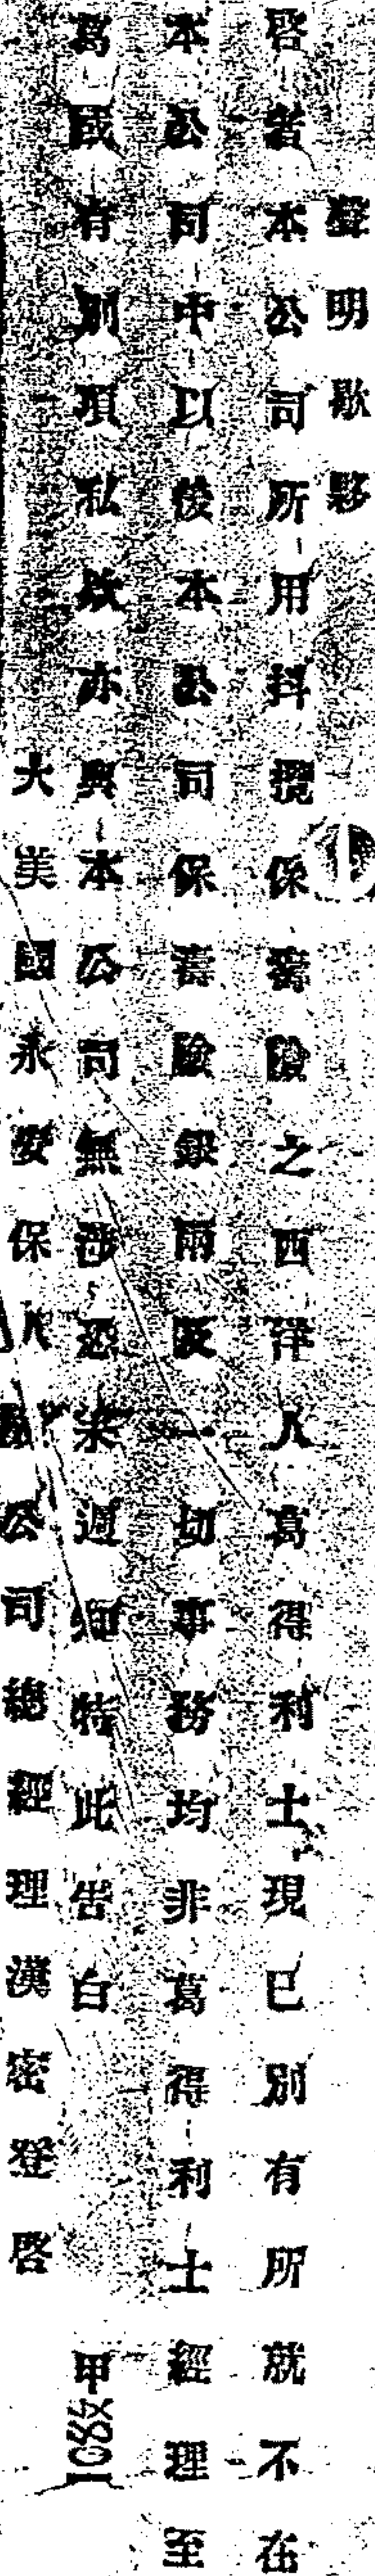 聲明歇夥
啓者本公司所用抖攬保壽險之西洋人葛得利士現已別有所就不在
本公司中以後本公司保壽險銀兩及一切事務均非葛得利士經理至
葛或有別項私款亦與本公司無涉恐未週知特此告白 甲
大美國永安保人險公司總經理漢密登啓